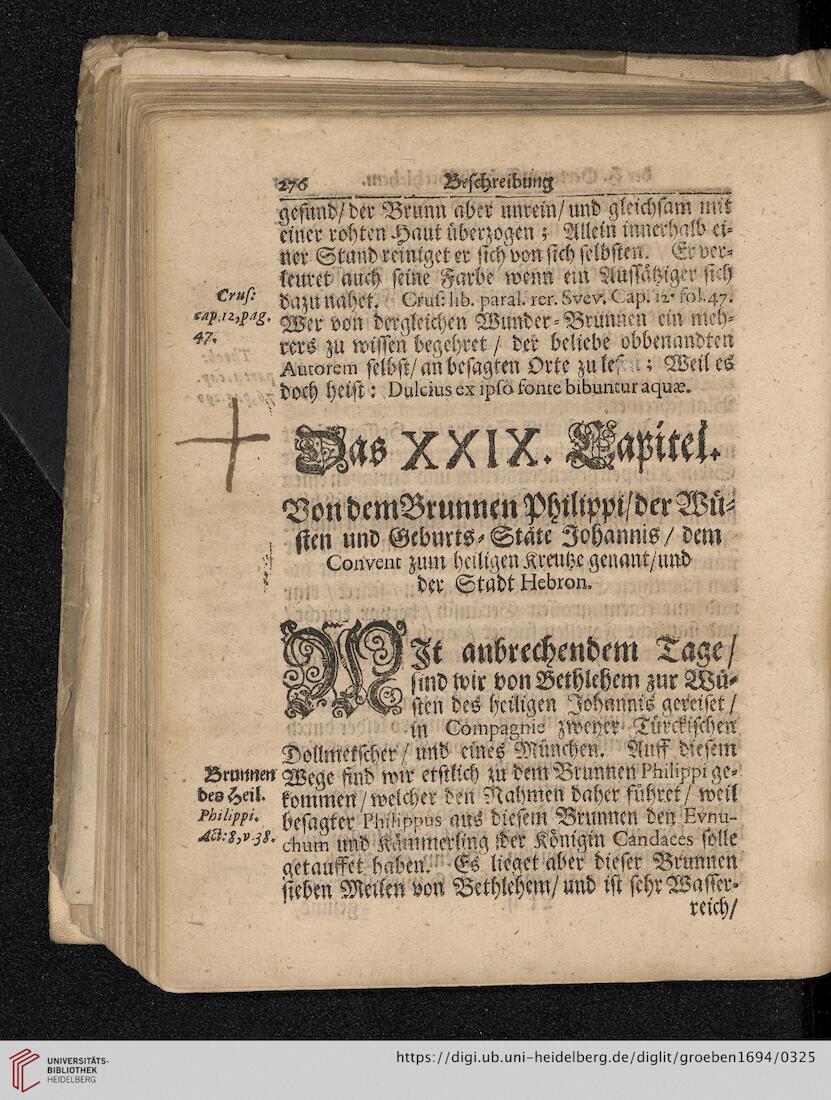 276 Beschreibung
gesund/ der Brunn aber unrein/ und gleichsam mit
einer rohten Haut überzogen ; Allein innerhalb ei-
ner Stund reiniget er sich von sich selbsten. Er ver-
leuret auch seine Farbe wenn ein Aussätziger sich
dazu nahet. Cruſ: lib. paral. rer. Svev. Cap. 12. fol. 47.
Crus:
cap. 12, pag.
47.
Wer von dergleichen Wunder-Brunnen ein meh-
rers zu wissen begehret / der beliebe obbenandten
Autorem selbst/ an besagten Orte zu lesen ; Weil es
doch heist : Dulcius ex ipſo fonte bibuntur aquæ.
Das XXIX. Capitel.
Von dem Brunnen Philippi/ der Wü-
sten und Geburts-Stäte Johannis / dem
Convent zum heiligen Kreutze genant/ und
der Stadt Hebron.
MJt anbrechendem Tage/
sind wir von Bethlehem zur Wü-
sten des heiligen Johannis gereiset /
in Compagnie zweyer Türckischen
Dollmetscher / und eines München. Auff diesem
Wege sind wir etstlich zu dem Brunnen Philippi ge-
kommen / welcher den Nahmen daher führet / weil
besagter Philippus aus diesem Brunnen den Evnu-
chum und Kämmerling der Königin Candaces solle
getauffet haben. Es lieget aber dieser Brunnen
sieben Meilen von Bethlehem/ und ist sehr Wasser-
reich/
Brunnen
des Heil.
Philippi.
Act: 8, v. 38.
UNIVERSITÄTS-
BIBLIOTHEK
HEIDELBERG
https://digi.ub.uni-heidelberg.de/diglit/groeben1694/0325